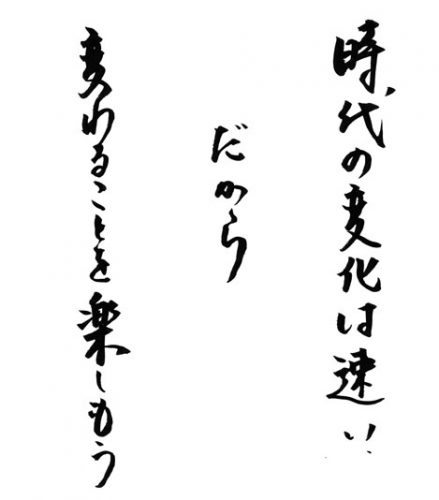 時代の変化は速い
だから
変わることを楽しもう